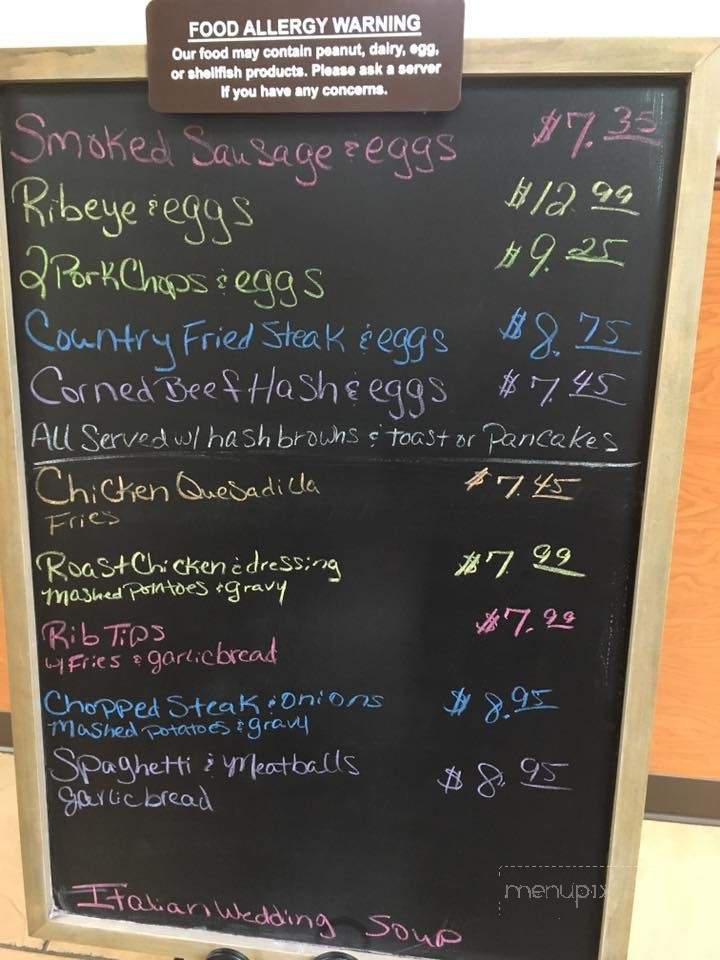 FOOD ALLERGY WARNING
Our food may contain peanut, dairy, egg,
or shellfish products. Please ask a server
if you have any concerns.
Smoked Sausage & eggs $7.35
Ribeye & eggs $12.99
2 Pork Chops & eggs $9.25
Country Fried Steak & eggs $8.75
Corned Beef Hash & eggs $7.45
All Served w/ hash browns & toast or Pancakes
Chicken Quesadilla $7.45
Fries
Roast Chicken & dressing $7.99
Mashed Potatoes & gravy
Rib Tips $7.99
w/ Fries & garlic bread
Chopped Steak & Onions $8.95
Mashed Potatoes & gravy
Spaghetti & Meatballs $8.95
garlic bread
Italian Wedding Soup
menupix